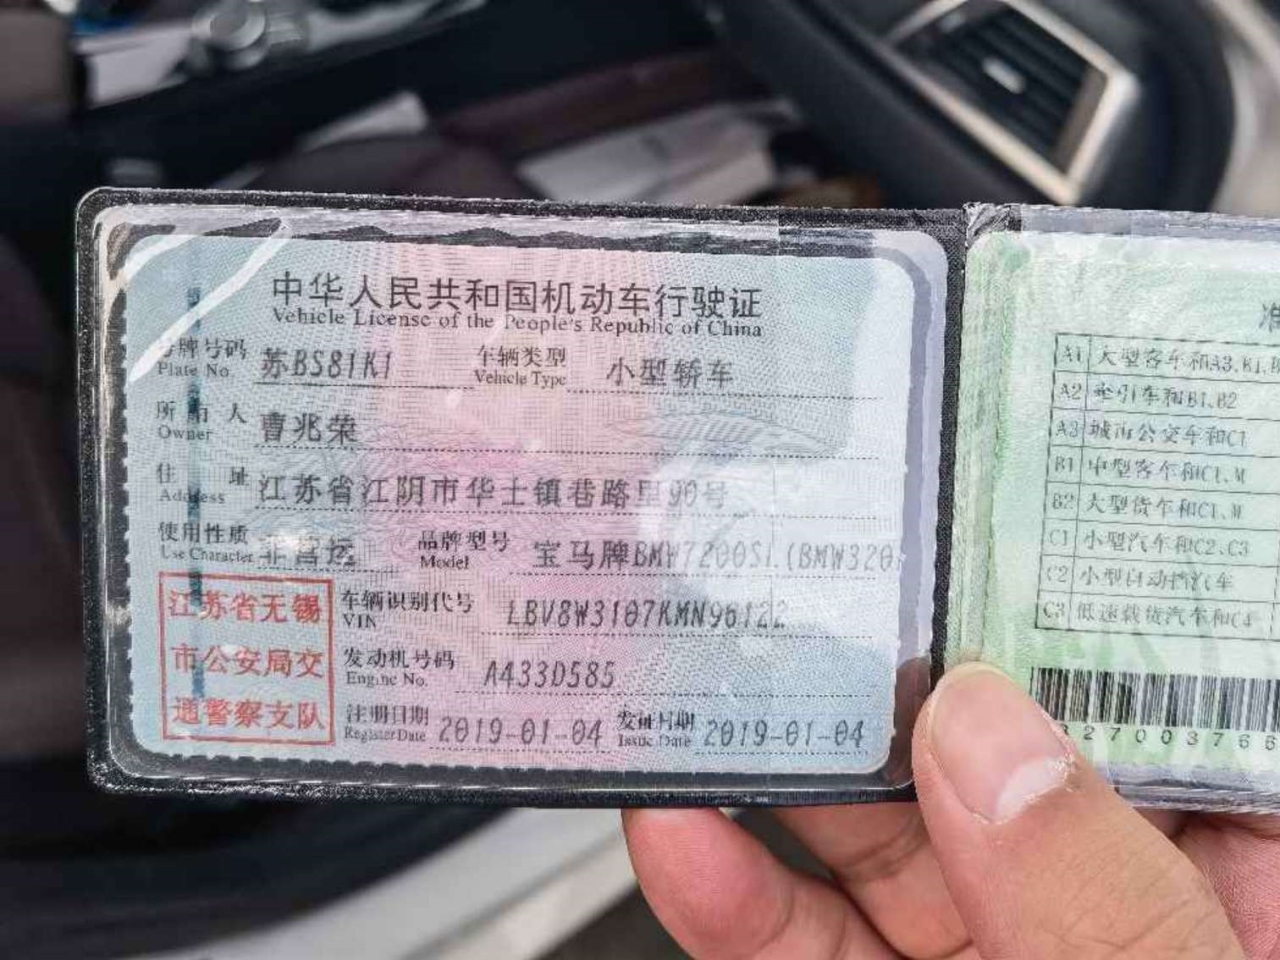 中华人民共和国机动车行驶证
Vehicle License of the People's Republic of China
号牌号码 苏BS81K1 车辆类型 小型轿车
Plate No. Vehicle Type
所有人 曹兆荣
Owner
住址 江苏省江阴市华士镇巷路里90号
Address
使用性质 非营运 品牌型号 宝马牌BMW7200SL(BMW320
Use Character Model
江苏省无锡
市公安局交
通警察支队
车辆识别代号 LBV8W3107KMN96122
VIN
发动机号码 A433D585
Engine No.
注册日期 2019-01-04 发证日期 2019-01-04
Register Date Issue Date
准
A1 大型客车和A3、B1、B
A2 牵引车和B1、B2
A3 城市公交车和C1
B1 中型客车和C1、M
B2 大型货车和C1、M
C1 小型汽车和C2、C3
C2 小型自动挡汽车
C3 低速载货汽车和C4
27003766